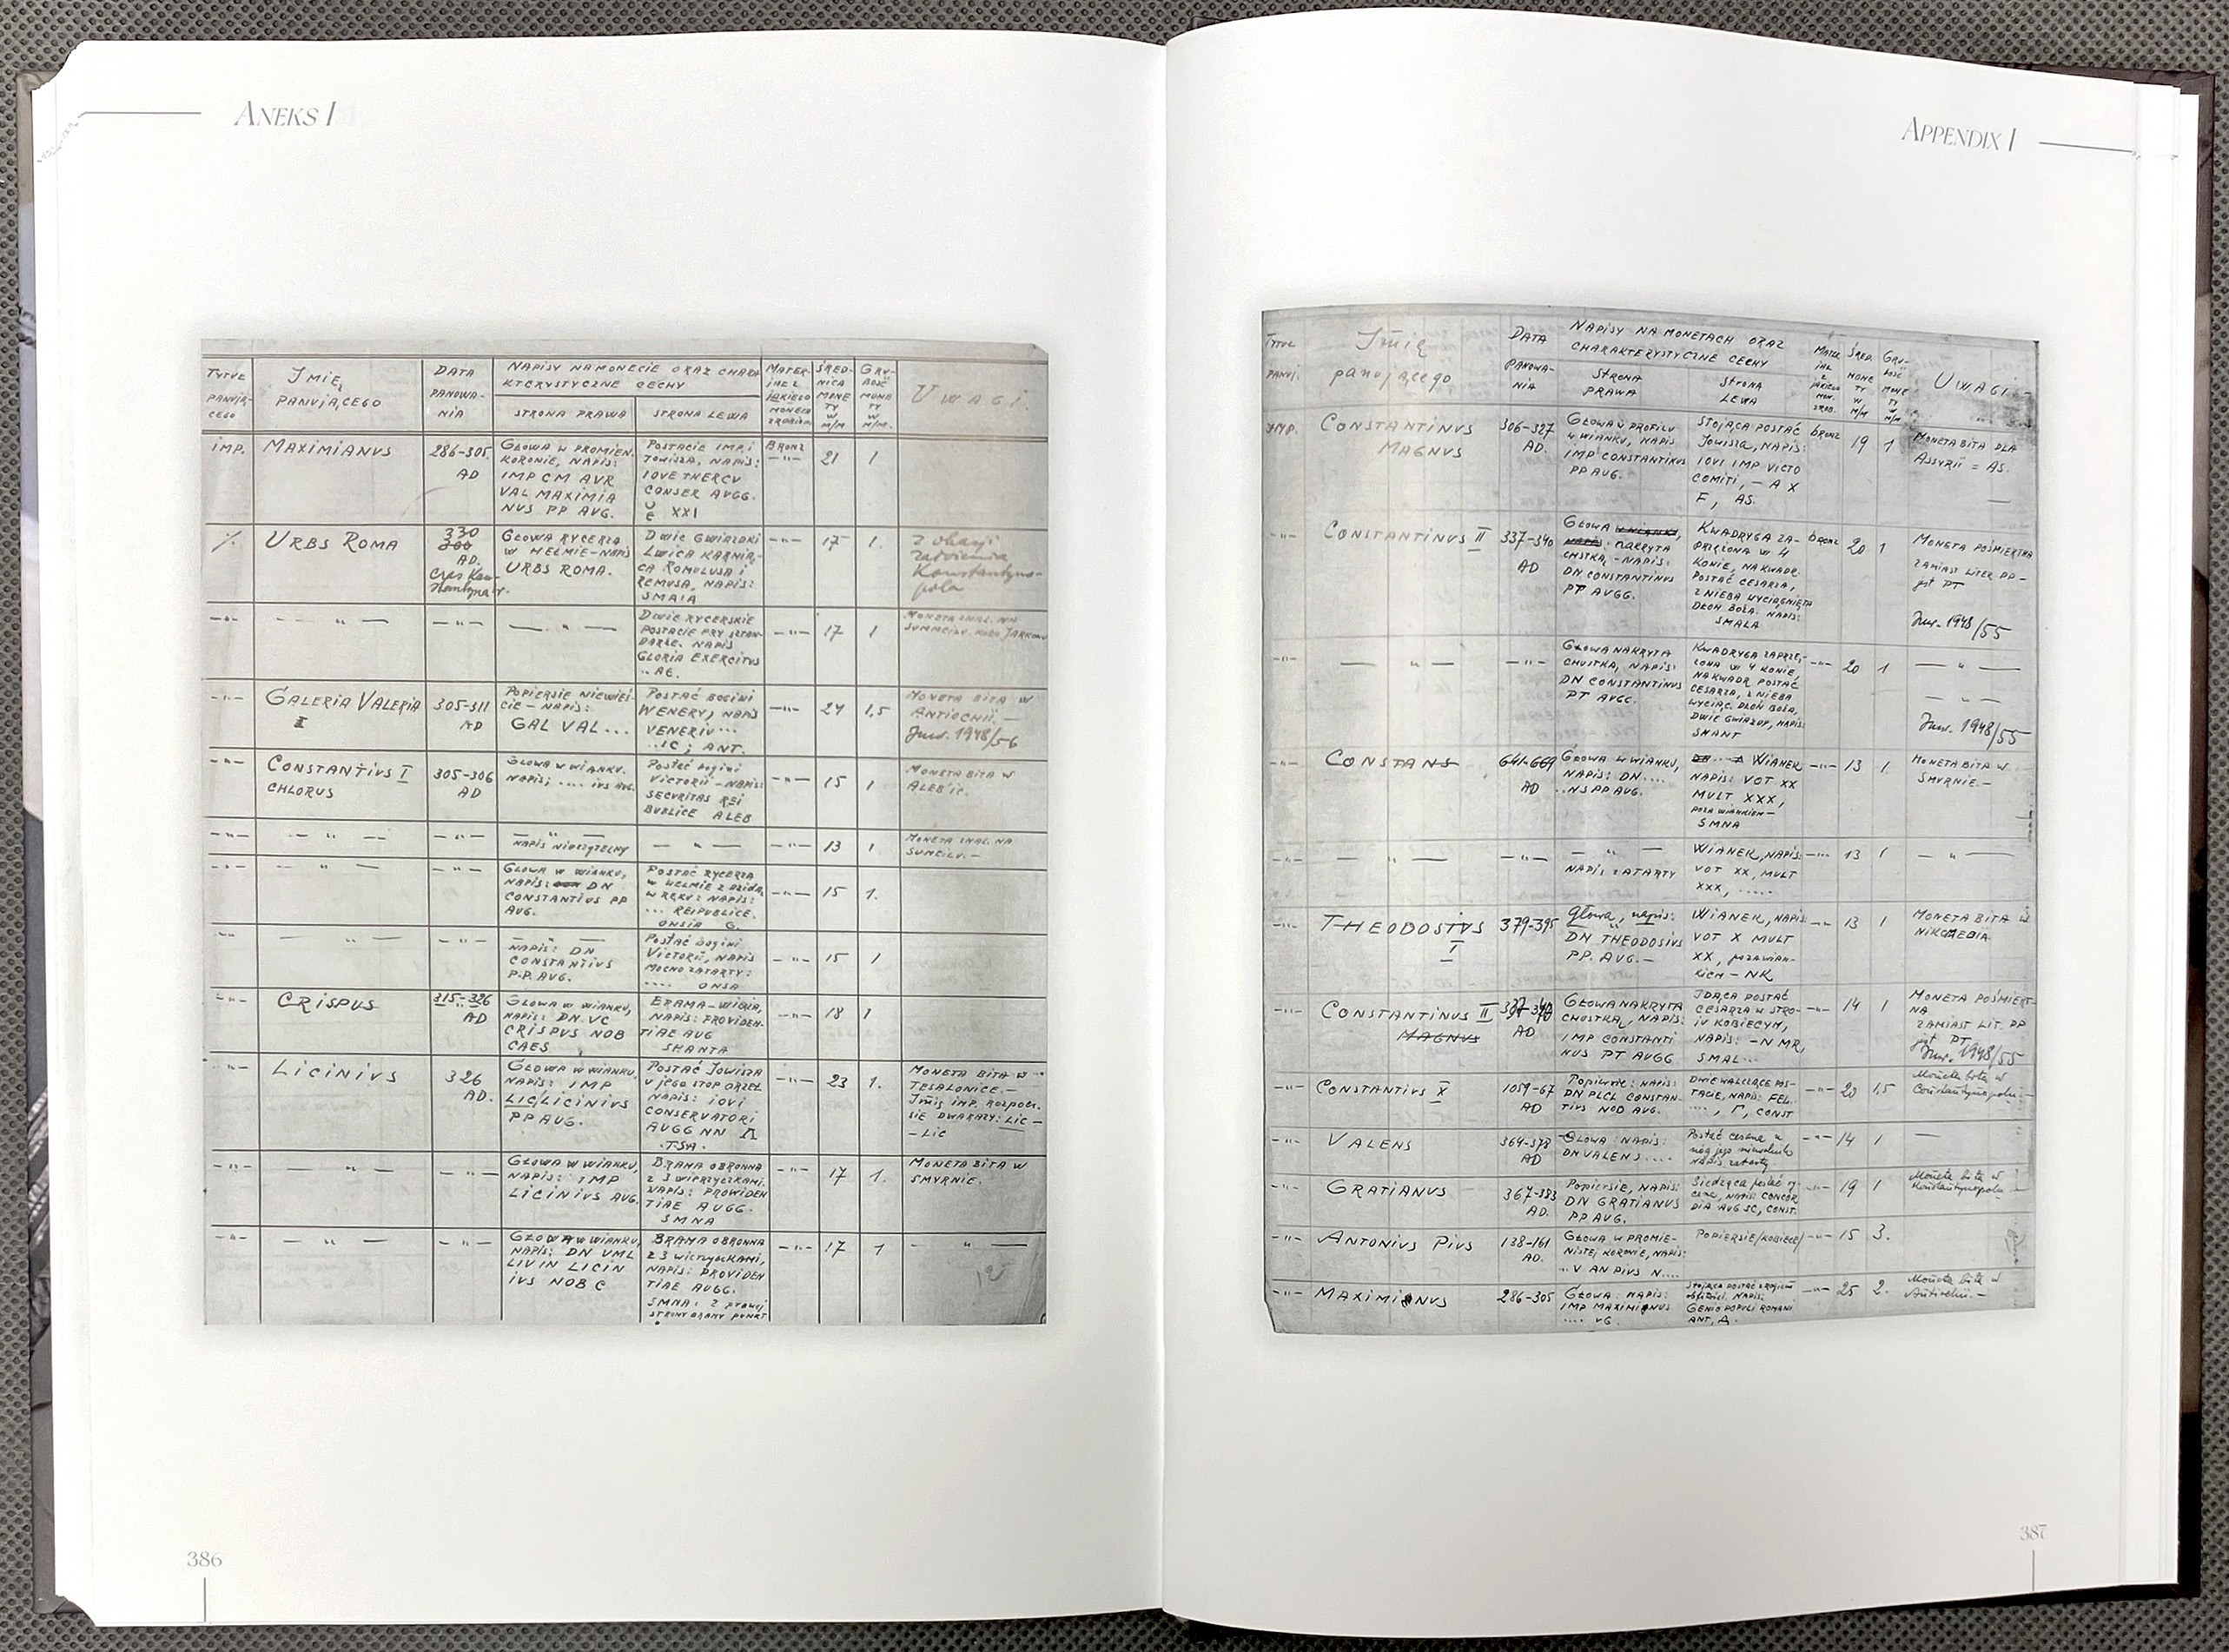 ANEKS I
TYTUŁ PANUJĄCEGO
IMIĘ PANUJĄCEGO
DATA PANOWANIA
NAPISY NA MONECIE ORAZ CHARAKTERYSTYCZNE CECHY
STRONA PRAWA
STRONA LEWA
UWAGI
IMP.
MAXIMIANUS
286-305
AD
GŁOWA W PROMIEN.
KORONIE, NAPIS:
IMP CM AVR
VAL MAXIMIA
NUS PP AUG.
POSTACIE IMP. I
JOWISZA, NAPIS:
IOVE THERCU
CONSER AUGG.
XXI
BRONZ
21
1
URBS ROMA
330
AD.
GŁOWA RYCERZA
W HEŁMIE-NAPIS
URBS ROMA.
DWIE GWIAZDKI
LWICA KARMIĄ-
CA ROMULUSA I
REMUSA, NAPIS:
SMAIA
17
1.
DWIE RYCERSKIE
POSTACIE PRY SZTAN-
DARZE. NAPIS
GLORIA EXERCITUS
17
1
GALERIA VALERIA
I
305-311
AD
POPIERSIE NIEWIEŚ-
CIE - NAPIS:
GAL VAL...
POSTAĆ BOGINI
WENERY, NAPIS
VENERIV...
..IC; ANT.
24
1,5
MONETA BITA W
ANTIOCHII. -
Inw. 1948/56
CONSTANTIUS I
CHLORUS
305-306
AD
GŁOWA W WIANKU.
NAPIS; .... IUS AUG.
Postać bogini
VICTORII - NAPIS:
SECURITAS REI
BUBLICE ALEB
15
1
MONETA BITA W
NAPIS NIECZYTELNY
13
1
MONETA ZNAL. NA
GŁOWA W WIANKU,
NAPIS: DN
CONSTANTIUS PP
AUG.
POSTAĆ RYCERZA
W HEŁMIE Z DZIDĄ
W RĘKU: NAPIS:
... REIPUBLICE.
ONSIA G.
15
1.
NAPIS: DN
CONSTANTIUS
P.P. AUG.
Postać bogini
VICTORII, NAPIS
MOCNO ZATARTY:
.... ONSA
15
1
CRISPUS
315-326
AD
GŁOWA W WIANKU,
NAPIS: DN. VC
CRISPUS NOB
CAES
BRAMA-WIEŻA,
NAPIS: PROVIDEN-
TIAE AUG
SMANTA
18
1
LICINIUS
326
AD.
GŁOWA W WIANKU,
NAPIS: IMP
LIC/LICINIUS
PP AUG.
POSTAĆ JOWISZA
U JEGO STOP ORZEŁ
NAPIS: IOVI
CONSERVATORI
AUGG NN
.TSA.
23
1.
MONETA BITA W
TESALONICE. -
SIE DWA RAZY: LIC -
- LIC
GŁOWA W WIANKU,
NAPIS: IMP
LICINIUS AUG.
BRAMA OBRONNA
Z 3 WIERZYCZKAMI.
NAPIS: PROWIDEN
TIAE AUGG.
SMNA
17
1.
MONETA BITA W
SMYRNIE.
GŁOWA W WIANKU,
NAPIS: DN VML
LIV IN LICIN
IUS NOB C
BRAMA OBRONNA
Z 3 wieżyczkami,
NAPIS: PROVIDEN
TIAE AUGG.
SMNA: Z prawej
STRONY BRAMY PUNKT
17
1
386
APPENDIX I
Imię
panującego
DATA
PANOWA-
NIA
NAPISY NA MONETACH ORAZ
CHARAKTERYSTYCZNE CECHY
STRONA
PRAWA
STRONA
LEWA
UWAGI. -
IMP.
CONSTANTINUS
MAGNUS
306-327
AD.
GŁOWA W PROFILU
W WIANKU, NAPIS
IMP CONSTANTINUS
PP AUG.
STOJĄCA POSTAĆ
Jowisza, NAPIS:
IOVI IMP VICTO
COMITI, - A X
F, AS.
bronz
19
1
MONETA BITA DLA
ASSYRII = AS.
CONSTANTINUS II
337-340
AD
GŁOWA
NAKRYTA
CHSTKĄ - NAPIS:
DN CONSTANTINUS
PT AUGG.
KWADRYGA ZA-
PRZĘŻONA W 4
KONIE, NA KWADR.
POSTAĆ CESARZA,
Z NIEBA WYCIĄGNIĘTA
DŁOŃ BOŻA. NAPIS:
SMALA
bronz
20
1
MONETA POŚMIERTNA
ZAMIAST LITER PP -
jest PT
Inw. 1948/55
GŁOWA NAKRYTA
CHUSTKĄ, NAPIS:
DN CONSTANTINUS
PT AUGG.
KWADRYGA ZAPRZĘ-
ŻONA W 4 KONIE,
NA KWADR POSTAĆ
CESARZA, Z NIEBA
WYCIĄG. DŁOŃ BOŻA,
DWIE GWIAZDY, NAPIS:
SMANT
20
1
Inw. 1948/55
CONSTANS
641-669
AD
GŁOWA W WIANKU,
NAPIS: DN....
..NS PP AUG.
WIANEK
NAPIS: VOT XX
MULT XXX,
poza wiankiem -
SMNA
13
1
MONETA BITA W
SMYRNIE. -
NAPIS ZATARTY
WIANEK, NAPIS:
VOT XX, MULT
XXX, .....
13
1
THEODOSIUS
I
379-395
Głowa, napis:
DN THEODOSIUS
PP. AUG. -
WIANEK, NAPIS
VOT X MULT
XX, poza wian-
kiem - NK
13
1
MONETA BITA W
NIKOMEDIA.
CONSTANTINUS II
MAGNUS
337-340
AD
GŁOWA NAKRYTA
CHUSTKĄ, NAPIS:
IMP CONSTANTI
NUS PT AUGG
IDĄCA POSTAĆ
CESARZA W STRO-
JU KOBIECYM,
NAPIS: - N MR,
SMAL...
14
1
MONETA POŚMIERT-
NA
ZAMIAST LIT. PP
jest PT
Inw. 1948/55
CONSTANTIUS X
1059-67
AD
Popiersie: NAPIS:
DN PLCL CONSTAN-
TIUS NOD AUG.
DWIE WALCZĄCE POS-
TACIE, NAPIS: FEL.
...., Γ, CONST
20
1,5
Moneta bita w
Constantynopolu -
VALENS
364-378
AD
GŁOWA: NAPIS:
DN VALENS....
Postać cesarza u
nóg jego niewolnik
NAPIS zatarty
14
1
GRATIANUS
367-383
AD.
Popiersie, NAPIS:
DN GRATIANUS
PP AUG.
NAPIS: CONCOR
DIA AUG SC, CONST.
19
1
Moneta bita w
Konstantynopolu -
ANTONIUS PIUS
138-161
AD.
GŁOWA W PROMIE-
NISTEJ KORONIE, NAPIS:
..V AN PIUS N....
POPIERSIE/KOBIECE/
15
3.
MAXIMIANUS
286-305
GŁOWA: NAPIS:
IMP MAXIMIANUS
.... UG.
GENIO POPULI ROMANI
ANT, Δ.
25
2.
Moneta bita w
Antiochii. -
387